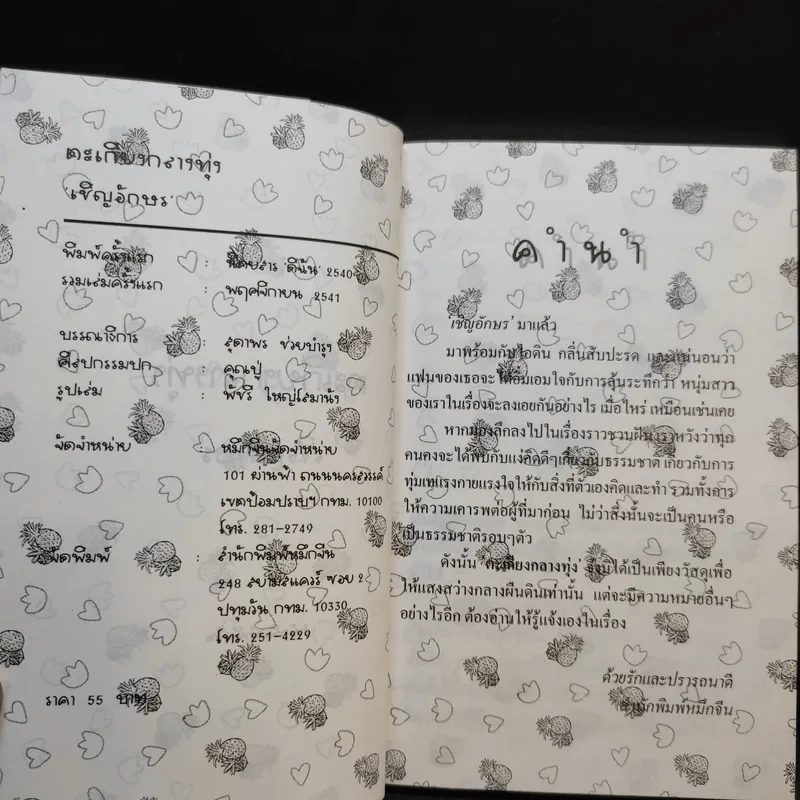 ตะเกียงกลางทุ่ง
'เชิญอักษร'
พิมพ์ครั้งแรก : นิตยสาร 'ดิฉัน' 2540
รวมเล่มครั้งแรก : พฤศจิกายน 2541
บรรณาธิการ : สุดาพร ช่วยบำรุง
ศิลปกรรมปก : คุณปู่
รูปเล่ม : พัชรี ใหญ่โสมานัง
จัดจำหน่าย : หมึกจีนจัดจำหน่าย
101 ผ่านฟ้า ถนนนครสวรรค์
เขตป้อมปราบฯ กทม. 10100
โทร. 281-2749
จัดพิมพ์ : สำนักพิมพ์หมึกจีน
248 สยามสแควร์ ซอย 2
ปทุมวัน กทม. 10330
โทร. 251-4229
ราคา 55 บาท
คำนำ
'เชิญอักษร' มาแล้ว
มาพร้อมกับไอดิน กลิ่นสับปะรด และแน่นอนว่า
แฟนของเธอจะได้อมเอมใจกับการลุ้นระทึกว่า หนุ่มสาว
ของเราในเรื่องจะลงเอยกันอย่างไร เมื่อไหร่ เหมือนเช่นเคย
หากมองลึกลงไปในเรื่องราวชวนฝัน เราหวังว่าทุก
คนคงจะได้พบกับแง่คิดดีๆเกี่ยวกับธรรมชาติ เกี่ยวกับการ
ทุ่มเทแรงกายแรงใจให้กับสิ่งที่ตัวเองคิดและทำ รวมทั้งการ
ให้ความเคารพต่อผู้ที่มาก่อน ไม่ว่าสิ่งนั้นจะเป็นคนหรือ
เป็นธรรมชาติรอบๆตัว
ดังนั้น 'ตะเกียงกลางทุ่ง' จึงมิได้เป็นเพียงวัสดุเพื่อ
ให้แสงสว่างกลางผืนดินเท่านั้น แต่จะมีความหมายอื่นๆ
อย่างไรอีก ต้องอ่านให้รู้แจ้งเองในเรื่อง
ด้วยรักและปรารถนาดี
สำนักพิมพ์หมึกจีน